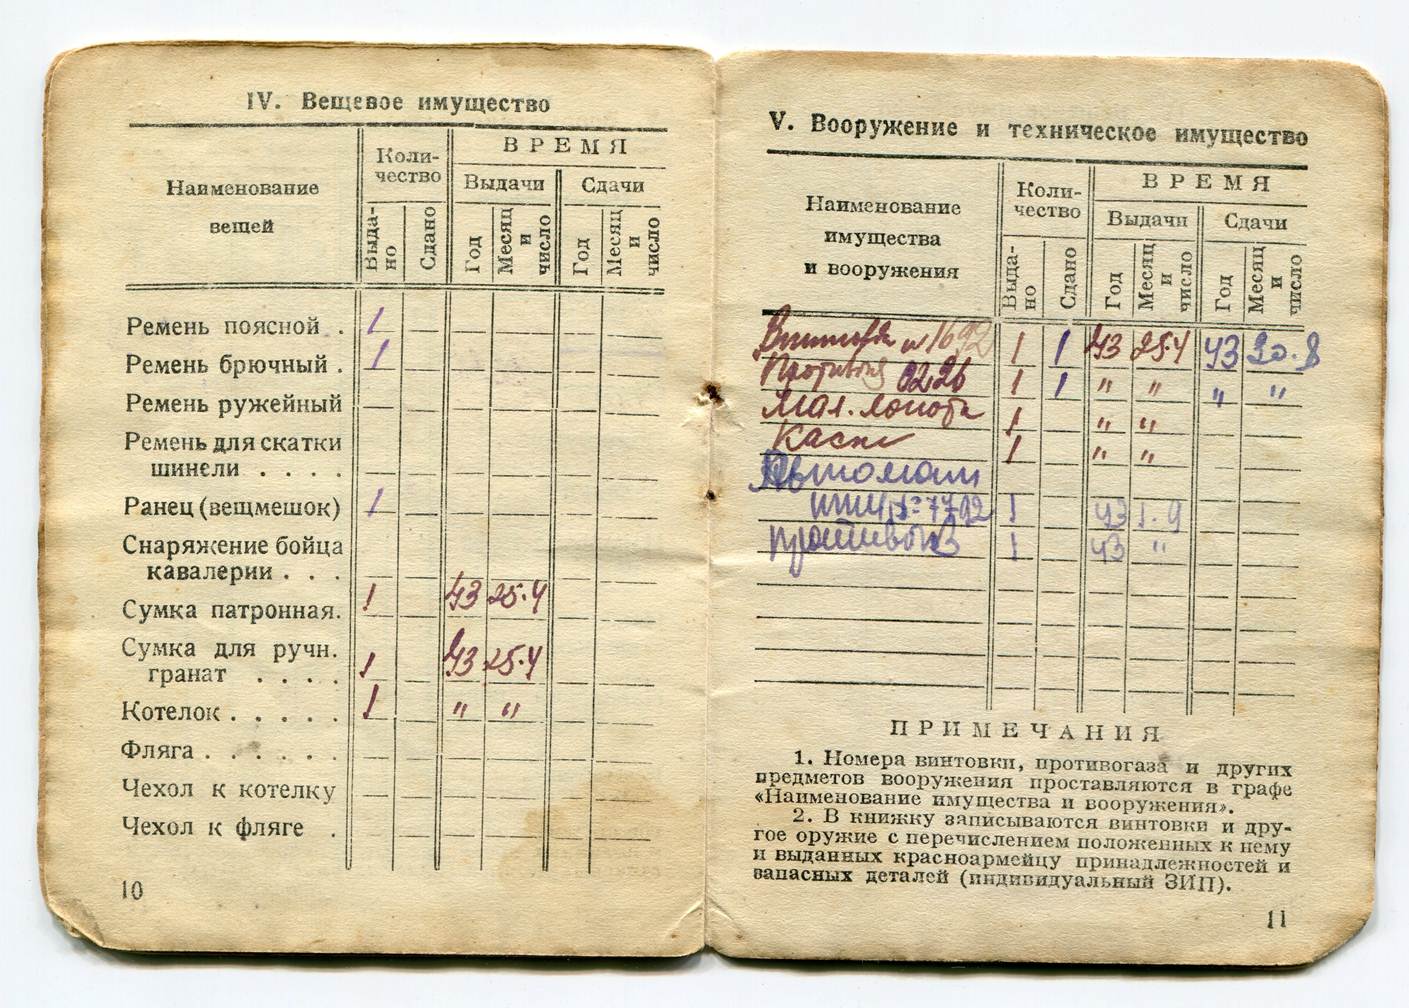 IV. Вещевое имущество
Наименование
вещей
Коли-
чество
ВРЕМЯ
Выдачи
Сдачи
Выда-
но
Сдано
Год
Месяц
и
число
Год
Месяц
и
число
Ремень поясной . 1
Ремень брючный . 1
Ремень ружейный
Ремень для скатки
шинели . . . .
Ранец (вещмешок) 1
Снаряжение бойца
кавалерии . . .
Сумка патронная. 1 43 25.4
Сумка для ручн.
гранат . . . . 1 43 25.4
Котелок . . . . . 1 " "
Фляга . . . . . .
Чехол к котелку
Чехол к фляге .
10
V. Вооружение и техническое имущество
Наименование
имущества
и вооружения
Коли-
чество
ВРЕМЯ
Выдачи
Сдачи
Выда-
но
Сдано
Год
Месяц
и
число
Год
Месяц
и
число
Винтовка № 1692 1 1 43 25.4 43 20.8
0226 1 1 " " " "
Мал. лопата 1 " "
Каска 1 " "
Автомат
№ 7792 1 43 1.9
1 43 "
ПРИМЕЧАНИЯ
1. Номера винтовки, противогаза и других
предметов вооружения проставляются в графе
«Наименование имущества и вооружения».
2. В книжку записываются винтовки и дру-
гое оружие с перечислением положенных к нему
и выданных красноармейцу принадлежностей и
запасных деталей (индивидуальный ЗИП).
11